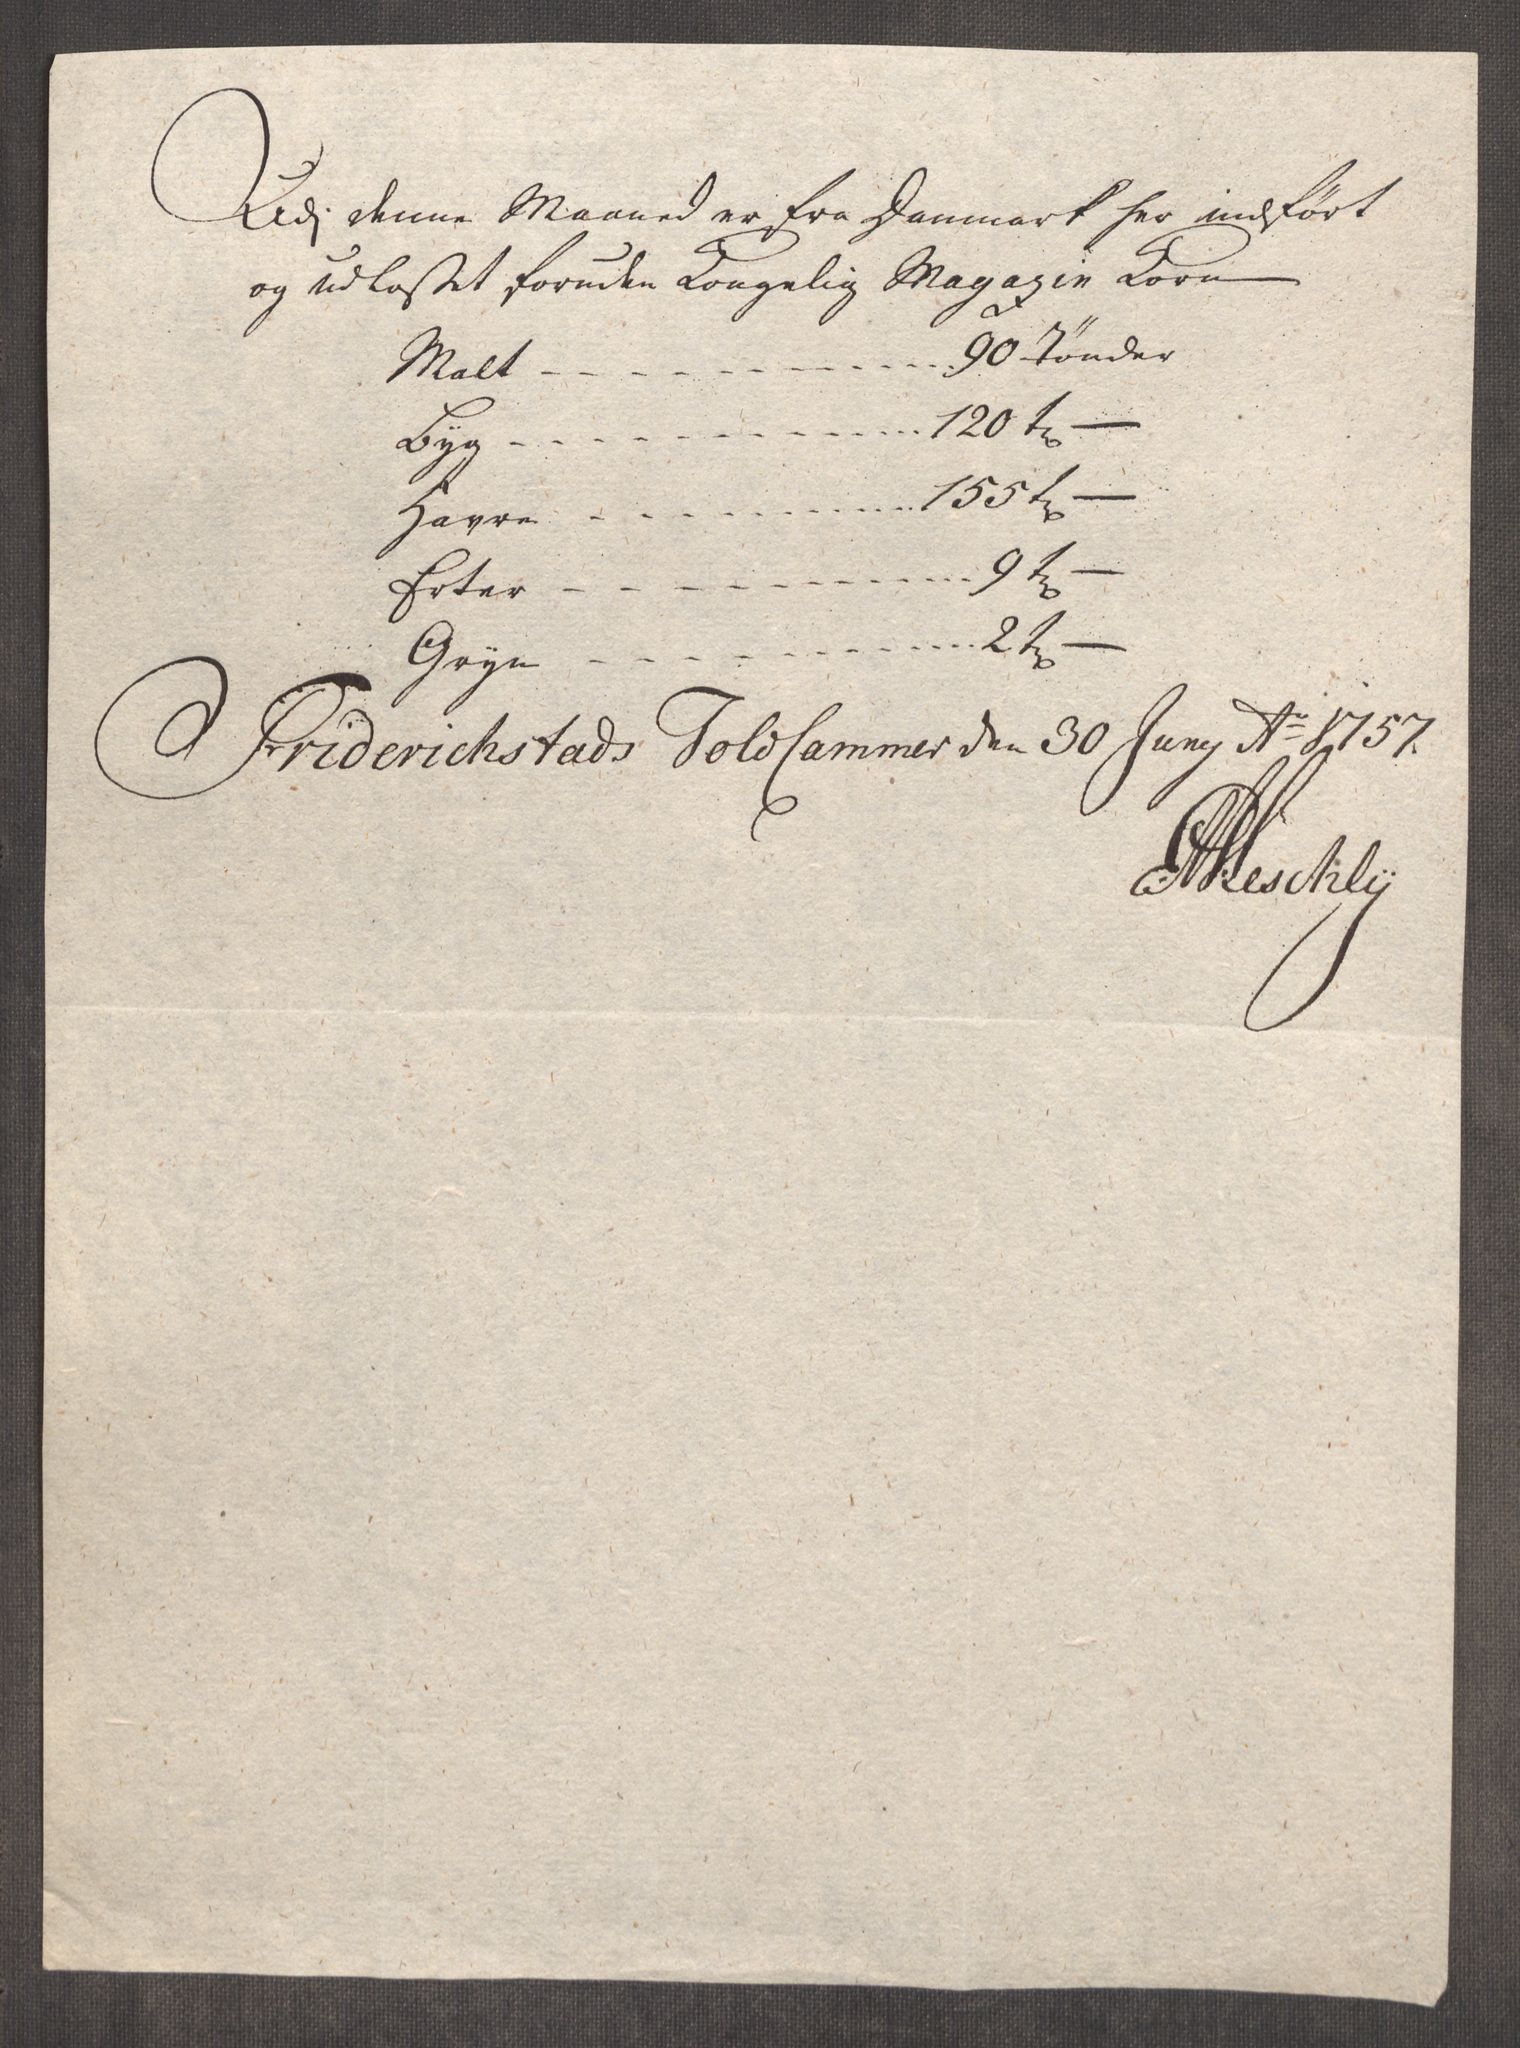 Udj denne Maaned er fra Danmark her indført
og udlosset foruden Kongelig Magazin Korn
Malt - - - - - - - - - - - 90 Tönder
Byg - - - - - - - - - - - 120 tr —
Havre - - - - - - - - - - 155 tr —
Erter - - - - - - - - - - 9 tr —
Gryn - - - - - - - - - - 2 tr —
Friderichstads Told Cammer den 30 Juny Ao 1757.